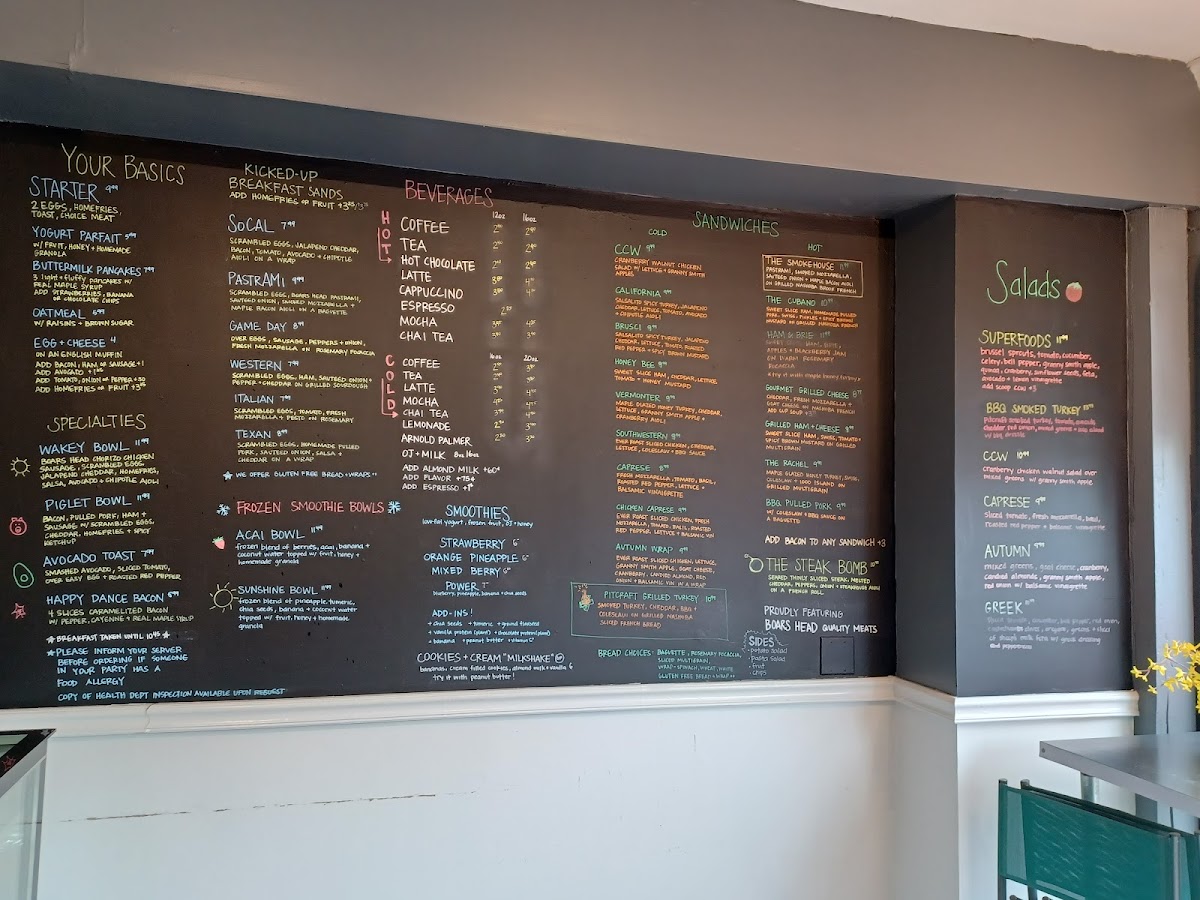 YOUR BASICS
STARTER 9⁹⁹
2 EGGS, HOMEFRIES,
TOAST, CHOICE MEAT
YOGURT PARFAIT 5⁹⁹
W/ FRUIT, HONEY + HOMEMADE
GRANOLA
BUTTERMILK PANCAKES 7⁹⁹
3 light + fluffy pancakes w/
REAL MAPLE SYRUP
ADD STRAWBERRIES, BANANA
OR CHOCOLATE CHIPS
OATMEAL 6⁹⁹
W/ RAISINS + BROWN SUGAR
EGG + CHEESE 4
ON AN ENGLISH MUFFIN
ADD BACON, HAM OR SAUSAGE +1
ADD AVOCADO
ADD TOMATO, ONION OR PEPPER +.50
ADD HOMEFRIES OR FRUIT
SPECIALTIES
WAKEY BOWL 11⁹⁹
BOARS HEAD CHORIZO CHICKEN
SAUSAGE, SCRAMBLED EGGS,
JALAPENO CHEDDAR, HOMEFRIES,
SALSA, AVOCADO + CHIPOTLE AIOLI
PIGLET BOWL 11⁹⁹
BACON, PULLED PORK, HAM +
SAUSAGE W/ SCRAMBLED EGGS,
CHEDDAR, HOMEFRIES + SPICY
KETCHUP
AVOCADO TOAST 7⁹⁹
SMASHED AVOCADO, SLICED TOMATO,
OVER EASY EGG + ROASTED RED PEPPER
HAPPY DANCE BACON 6⁹⁹
4 SLICES CARAMELIZED BACON
W/ PEPPER, CAYENNE + REAL MAPLE SYRUP
* BREAKFAST TAKEN UNTIL 10:45 *
* PLEASE INFORM YOUR SERVER
BEFORE ORDERING IF SOMEONE
IN YOUR PARTY HAS A
FOOD ALLERGY
COPY OF HEALTH DEPT INSPECTION AVAILABLE UPON REQUEST
KICKED-UP
BREAKFAST SANDS
ADD HOMEFRIES OR FRUIT
SOCAL 7⁹⁹
SCRAMBLED EGGS, JALAPENO CHEDDAR,
BACON, TOMATO, AVOCADO + CHIPOTLE
AIOLI ON A WRAP
PASTRAMI 9⁹⁹
SCRAMBLED EGGS, BOARS HEAD PASTRAMI,
SAUTEED ONION, SMOKED MOZZARELLA +
MAPLE BACON AIOLI ON A BAGUETTE
GAME DAY 8⁹⁹
OVER EGGS, SAUSAGE, PEPPERS + ONION,
FRESH MOZZARELLA ON ROSEMARY FOCACCIA
WESTERN 7⁹⁹
SCRAMBLED EGGS, HAM, SAUTEED ONION +
PEPPER + CHEDDAR ON GRILLED SOURDOUGH
ITALIAN 7⁹⁹
SCRAMBLED EGGS, TOMATO, FRESH
MOZZARELLA + PESTO ON ROSEMARY
TEXAN 8⁹⁹
SCRAMBLED EGGS, HOMEMADE PULLED
PORK, SAUTEED ONION, SALSA +
CHEDDAR ON A WRAP
* WE OFFER GLUTEN FREE BREAD + WRAPS
FROZEN SMOOTHIE BOWLS
ACAI BOWL 11⁹⁹
frozen blend of berries, acai, banana +
coconut water topped w/ fruit, honey +
homemade granola
SUNSHINE BOWL 11⁹⁹
frozen blend of pineapple, turmeric,
chia seeds, banana + coconut water
topped w/ fruit, honey + homemade
granola
BEVERAGES
12oz 16oz
HOT
COFFEE
TEA
HOT CHOCOLATE
LATTE
CAPPUCCINO
ESPRESSO
MOCHA
CHAI TEA
16oz 20oz
COLD
COFFEE
TEA
LATTE
MOCHA
CHAI TEA
LEMONADE
ARNOLD PALMER
OJ + MILK 8oz 16oz
ADD ALMOND MILK +60¢
ADD FLAVOR +75¢
ADD ESPRESSO
SMOOTHIES
low-fat yogurt, frozen fruit, OJ + honey
STRAWBERRY 6
ORANGE PINEAPPLE 6
MIXED BERRY 6
POWER 7
blueberry, pineapple, banana + chia seeds
ADD-INS!
+ chia seeds + turmeric + ground flaxseed
+ vanilla protein (plant) + chocolate protein (plant)
+ banana + peanut butter + vitamin C
COOKIES + CREAM "MILKSHAKE"
bananas, cream filled cookies, almond milk + vanilla 6
try it with peanut butter!
SANDWICHES
COLD
CCW 9⁹⁹
CRANBERRY WALNUT CHICKEN
SALAD W/ LETTUCE + GRANNY SMITH
APPLES
CALIFORNIA 9⁹⁹
SALSALITO SPICY TURKEY, JALAPENO
CHEDDAR, LETTUCE, TOMATO, AVOCADO
+ CHIPOTLE AIOLI
BRUSCI 9⁹⁹
SALSALITO SPICY TURKEY, JALAPENO
CHEDDAR, LETTUCE, TOMATO, ROASTED
RED PEPPER + SPICY BROWN MUSTARD
HONEY BEE 9⁹⁹
SWEET SLICE HAM, CHEDDAR, LETTUCE,
TOMATO + HONEY MUSTARD
VERMONTER 9⁹⁹
MAPLE GLAZED HONEY TURKEY, CHEDDAR,
LETTUCE, GRANNY SMITH APPLE +
CRANBERRY AIOLI
SOUTHWESTERN 9⁹⁹
EVER ROAST SLICED CHICKEN, CHEDDAR,
LETTUCE, COLESLAW + BBQ SAUCE
CAPRESE 8⁹⁹
FRESH MOZZARELLA, TOMATO, BASIL,
ROASTED RED PEPPER, LETTUCE +
BALSAMIC VINAIGRETTE
CHICKEN CAPRESE 9⁹⁹
EVER ROAST SLICED CHICKEN, FRESH
MOZZARELLA, TOMATO, BASIL, ROASTED
RED PEPPER, LETTUCE + BALSAMIC VIN
AUTUMN WRAP 9⁹⁹
EVER ROAST SLICED CHICKEN, LETTUCE,
GRANNY SMITH APPLE, GOAT CHEESE,
CRANBERRY, CANDIED ALMOND, RED
ONION + BALSAMIC VIN IN A WRAP
PITCRAFT GRILLED TURKEY 10⁹⁹
SMOKED TURKEY, CHEDDAR, BBQ +
COLESLAW ON GRILLED NASHOBA
SLICED FRENCH BREAD
BREAD CHOICES: BAGUETTE, ROSEMARY FOCACCIA,
SLICED MULTIGRAIN
WRAP - SPINACH, WHEAT, WHITE
GLUTEN FREE BREAD + WRAP
HOT
THE SMOKEHOUSE 11⁹⁹
PASTRAMI, SMOKED MOZZARELLA,
SAUTEED ONION + MAPLE BACON AIOLI
ON GRILLED NASHOBA BROOK FRENCH
THE CUBANO 10⁹⁹
SWEET SLICE HAM, HOMEMADE PULLED
PORK, SWISS, PICKLES + SPICY BROWN
MUSTARD ON GRILLED NASHOBA FRENCH
HAM & BRIE
APPLES + BLACKBERRY JAM
ON WARM ROSEMARY
FOCACCIA
GOURMET GRILLED CHEESE 8⁹⁹
CHEDDAR, FRESH MOZZARELLA +
GOAT CHEESE ON NASHOBA FRENCH
ADD CUP SOUP
GRILLED HAM + CHEESE 8⁹⁹
SWEET SLICE HAM, SWISS, TOMATO +
SPICY BROWN MUSTARD ON GRILLED
MULTIGRAIN
THE RACHEL 9⁹⁹
MAPLE GLAZED HONEY TURKEY, SWISS,
COLESLAW + 1000 ISLAND ON
GRILLED MULTIGRAIN
BBQ PULLED PORK 9⁹⁹
W/ COLESLAW + BBQ SAUCE ON
A BAGUETTE
ADD BACON TO ANY SANDWICH +3
THE STEAK BOMB
SEARED THINLY SLICED STEAK, MELTED
CHEDDAR, PEPPERS, ONION + STEAKHOUSE AIOLI
ON A FRENCH ROLL
PROUDLY FEATURING
BOARS HEAD QUALITY MEATS
SIDES
potato salad
pasta salad
fruit
chips
Salads
SUPERFOODS 11⁹⁹
brussel sprouts, tomato, cucumber,
celery, bell pepper, granny smith apple,
quinoa, cranberry, sunflower seeds, feta,
avocado + lemon vinaigrette
add scoop CCW
BBQ SMOKED TURKEY
pitcraft smoked turkey, tomato, avocado,
cheddar, red onion, mixed greens + bbq
CCW 10⁹⁹
cranberry chicken walnut salad over
mixed greens w/ granny smith apple
CAPRESE 9⁹⁹
sliced tomato, fresh mozzarella, basil,
roasted red pepper + balsamic vinaigrette
AUTUMN 9⁹⁹
mixed greens, goat cheese, cranberry,
candied almonds, granny smith apple,
red onion w/ balsamic vinaigrette
GREEK